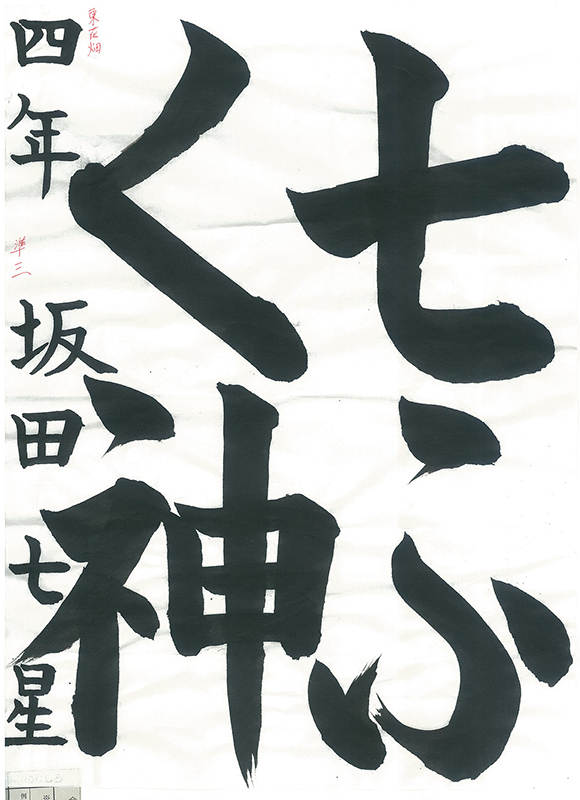 七ふ
く神
四年 坂田七星
準三